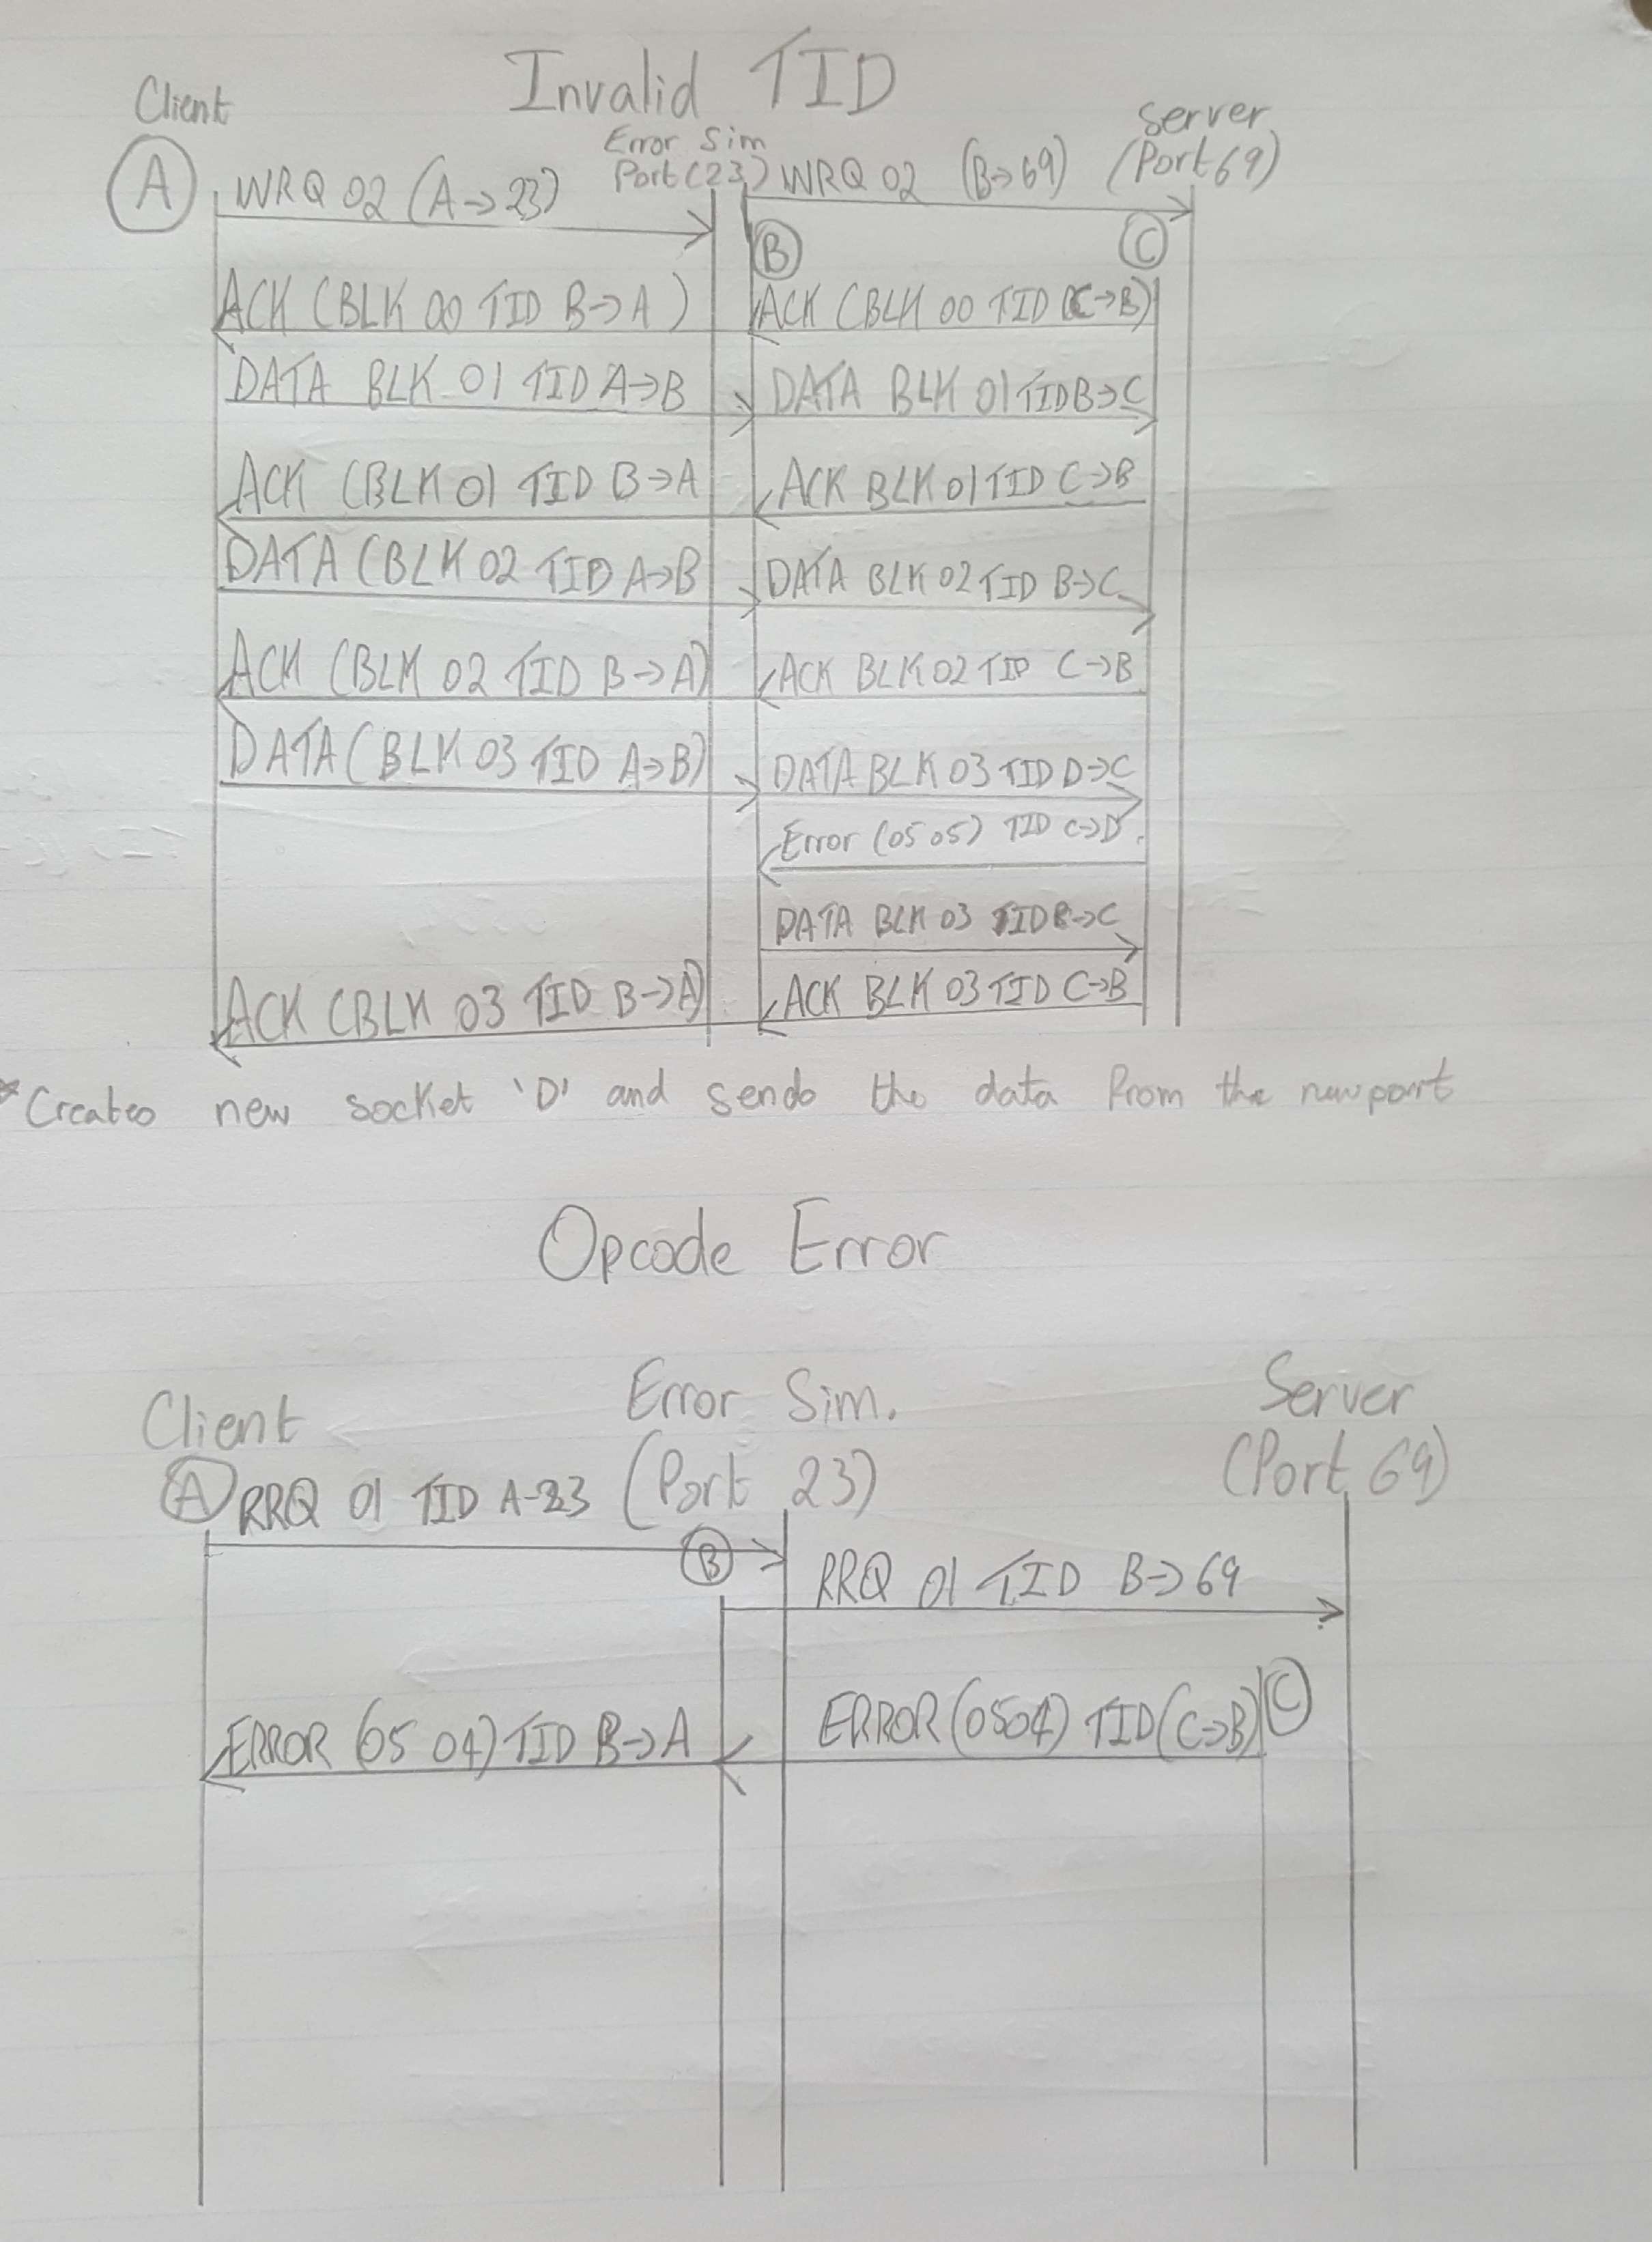 Invalid TID
Client
Error Sim
Port (23)
Server
(Port 69)
A
WRQ 02 (A->23)
WRQ 02 (B->69)
B
C
ACK (BLK 00 TID B->A)
ACK (BLK 00 TID (C->B)
DATA BLK 01 TID A->B
DATA BLK 01 TID B->C
ACK (BLK 01 TID B->A
ACK BLK 01 TID C->B
DATA (BLK 02 TID A->B
DATA BLK 02 TID B->C
ACK (BLK 02 TID B->A)
ACK BLK 02 TID C->B
DATA (BLK 03 TID A->B)
DATA BLK 03 TID D->C
Error (05 05) TID C->D
DATA BLK 03 TID B->C
ACK (BLK 03 TID B->A)
ACK BLK 03 TID C->B
*Creates new socket 'D' and sends the data from the new port
Opcode Error
Client
Error Sim.
(Port 23)
Server
(Port 69)
A
RRQ 01 TID A-23
B
RRQ 01 TID B->69
ERROR (05 04) TID B->A
ERROR (0504) TID (C->B)
C